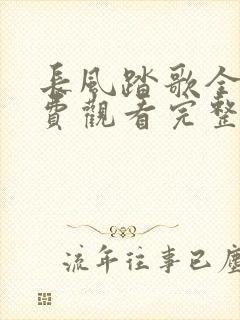 長風踏歌全
費觀看完整
流年往事已塵